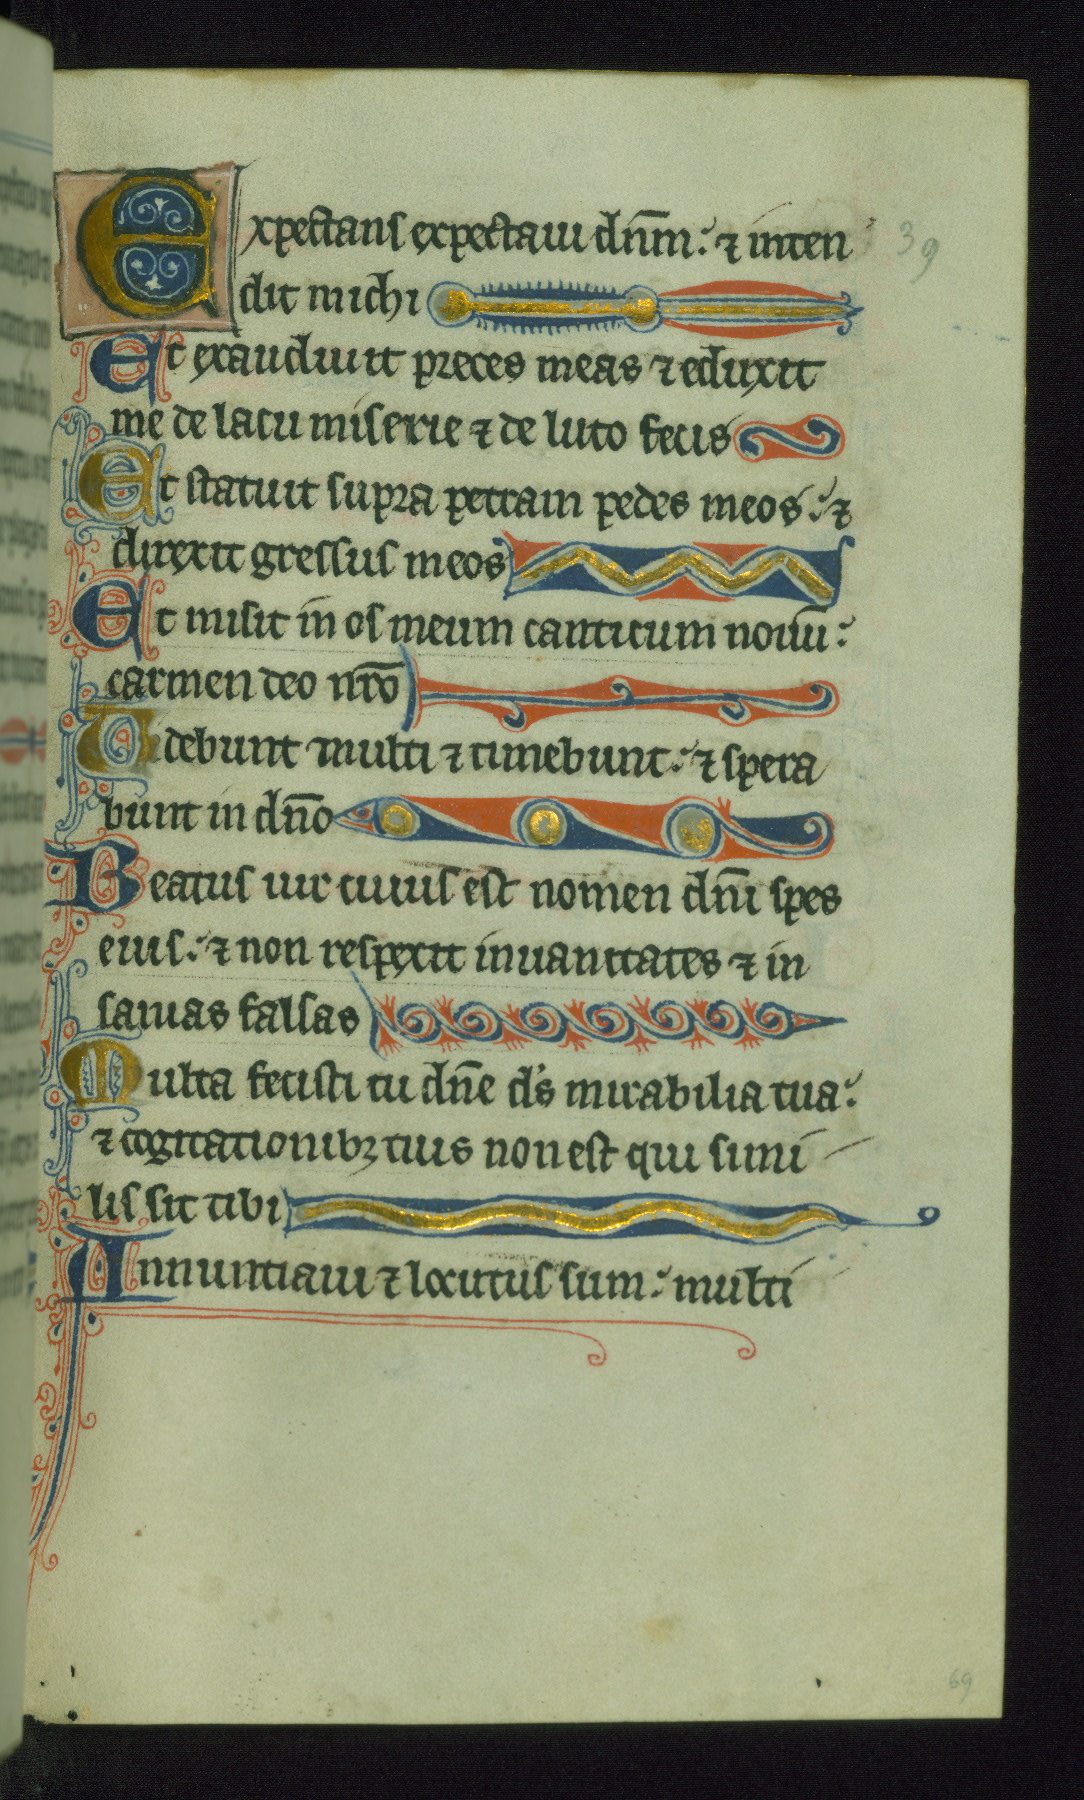 Expectans expectaui dn̄m: ⁊ inten
39
dit michi
Et exaudiuit preces meas ⁊ eduxit
me de lacu miserie ⁊ de luto fecis
Et statuit supra petram pedes meos: ⁊
direxit gressus meos
Et misit in os meum canticum nouū:
carmen deo nr̄o
Uidebunt multi ⁊ timebunt: ⁊ spera
bunt in dn̄o
Beatus uir cuius est nomen dn̄i spes
eius: ⁊ non respexit in uanitates ⁊ in
sanias falsas
Multa fecisti tu dn̄e ds̄ mirabilia tua:
⁊ cogitationibꝫ tuis non est qui simi
lis sit tibi
Annuntiaui ⁊ locutus sum: multi
69